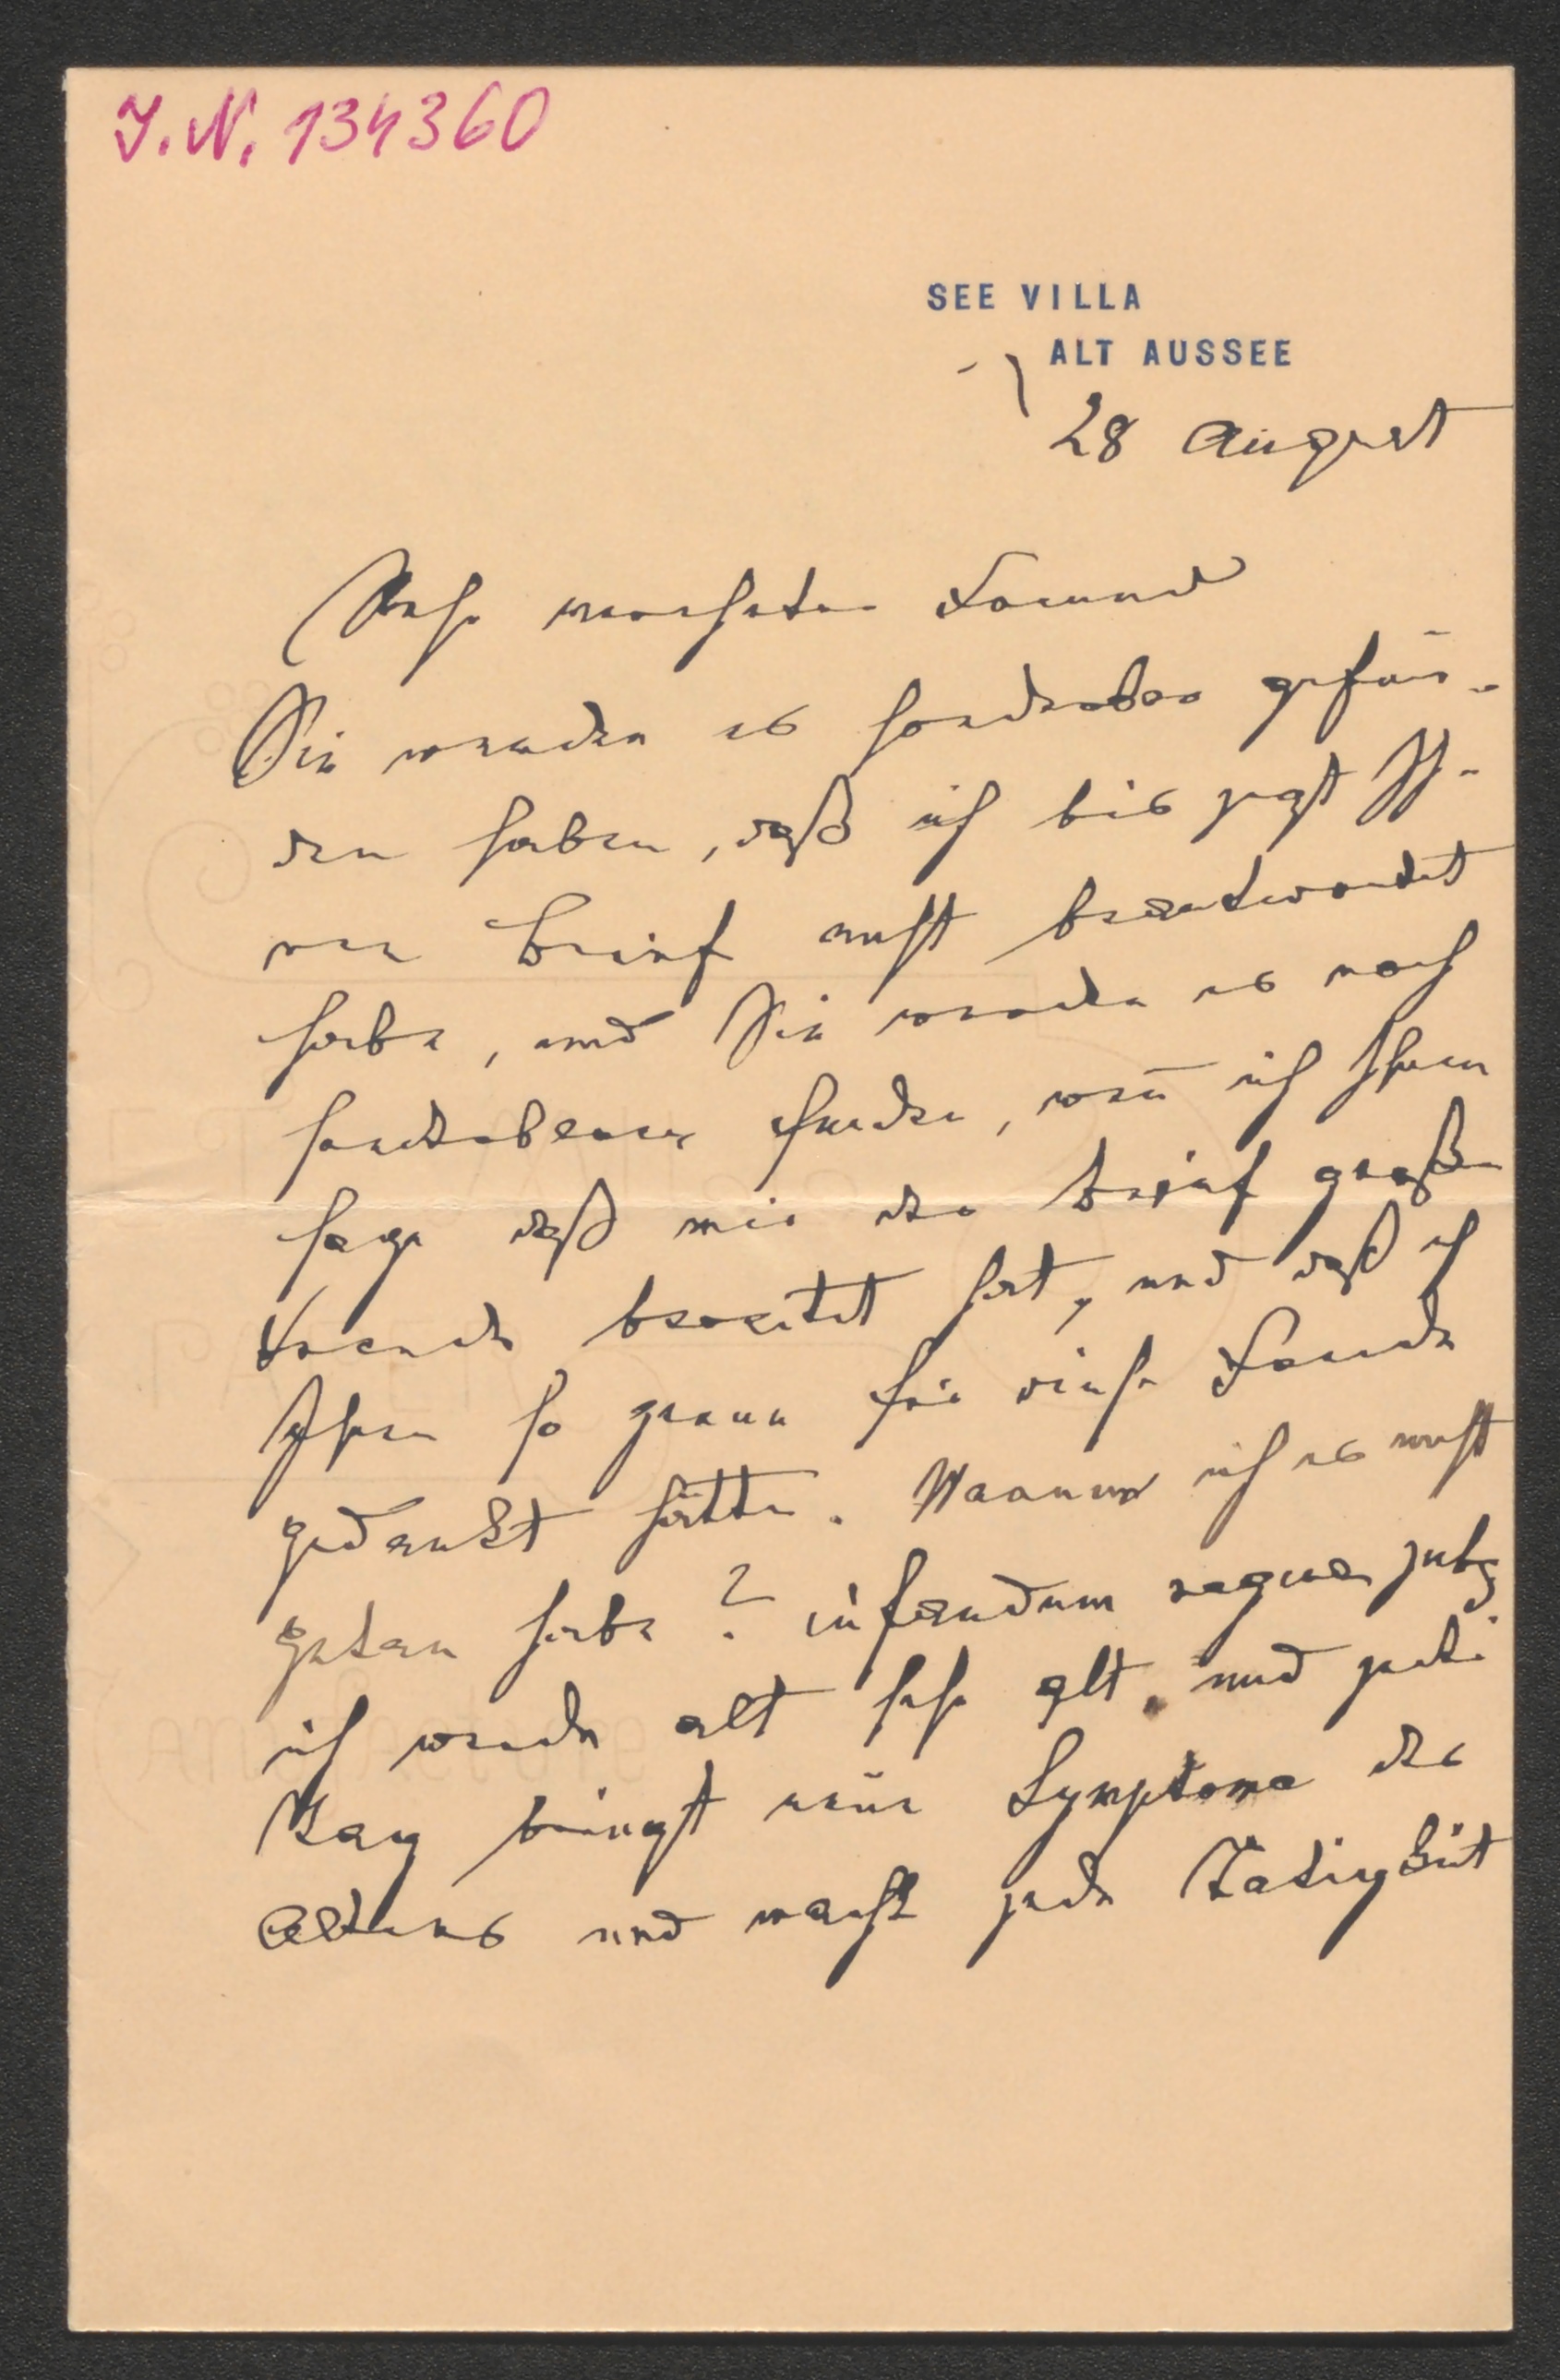 I. N. 134360
SEE VILLA
ALT AUSSEE
28 August
Sehr verehrter Freund
Sie werden es sonderbar gefun-
den haben, daß ich bis jetzt Ih-
ren Brief nicht beantwortet
habe, und Sie werden es noch
sonderbarer finden, wen̄ ich Ihnen
sage daß mir der Brief große
Freude bereitet hat, und daß ich
Ihnen so gerne für diese Freude
gedankt hätte. Warum ich es nicht
getan habe? infandum regina jubes
ich werde alt sehr alt, und jeder
Tag bringt neue Symptome des
Alters und macht jede Tatigkeit